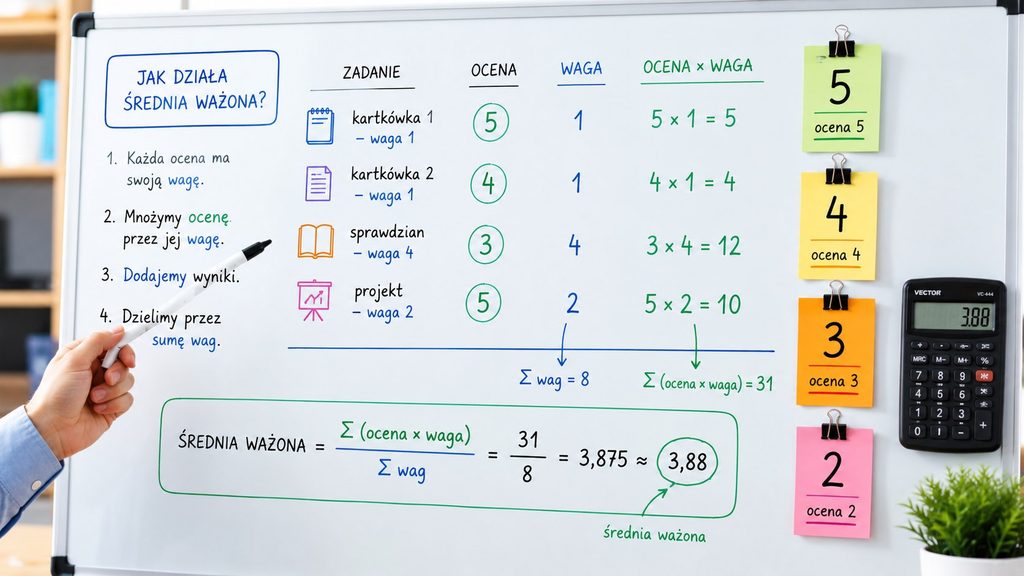 JAK DZIAŁA
ŚREDNIA WAŻONA?
1. Każda ocena ma
swoją wagę.
2. Mnożymy ocenę
przez jej wagę.
3. Dodajemy wyniki.
4. Dzielimy przez
sumę wag.
ZADANIE OCENA WAGA OCENA × WAGA
kartkówka 1
– waga 1
5 1 5 × 1 = 5
kartkówka 2
– waga 1
4 1 4 × 1 = 4
sprawdzian
– waga 4
3 4 3 × 4 = 12
projekt
– waga 2
5 2 5 × 2 = 10
Σ wag = 8 Σ (ocena × waga) = 31
ŚREDNIA WAŻONA = Σ (ocena × waga) / Σ wag = 31 / 8 = 3,875 ≈ 3,88
średnia ważona
5
ocena 5
4
ocena 4
3
ocena 3
2
ocena 2
VECTOR VC-444
3.88
MRC M– M+ %
7 8 9
4 5 6
1 2 3
0